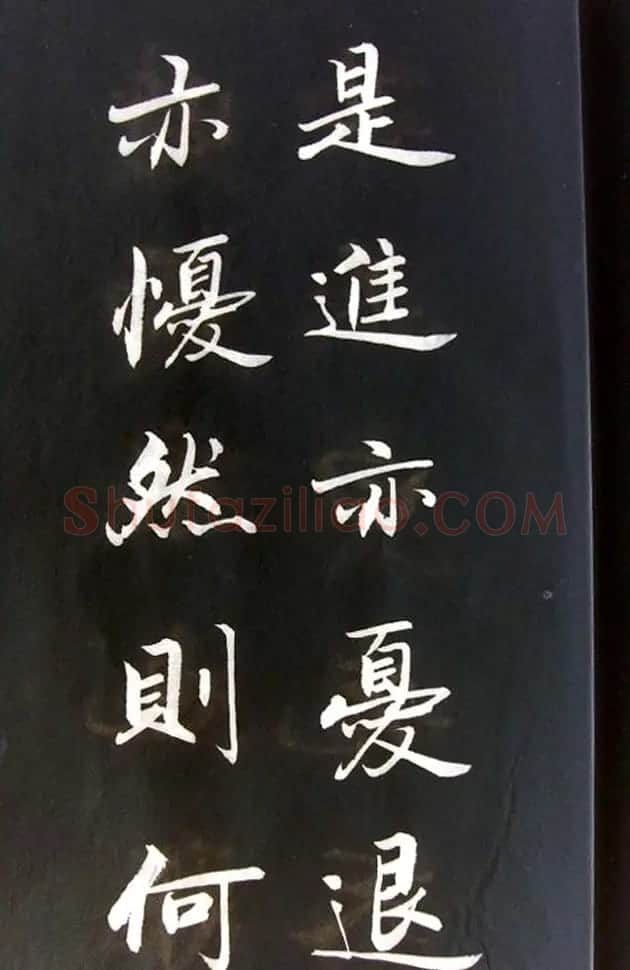 是進亦憂退
亦懮然則何
Shufaziliao.COM